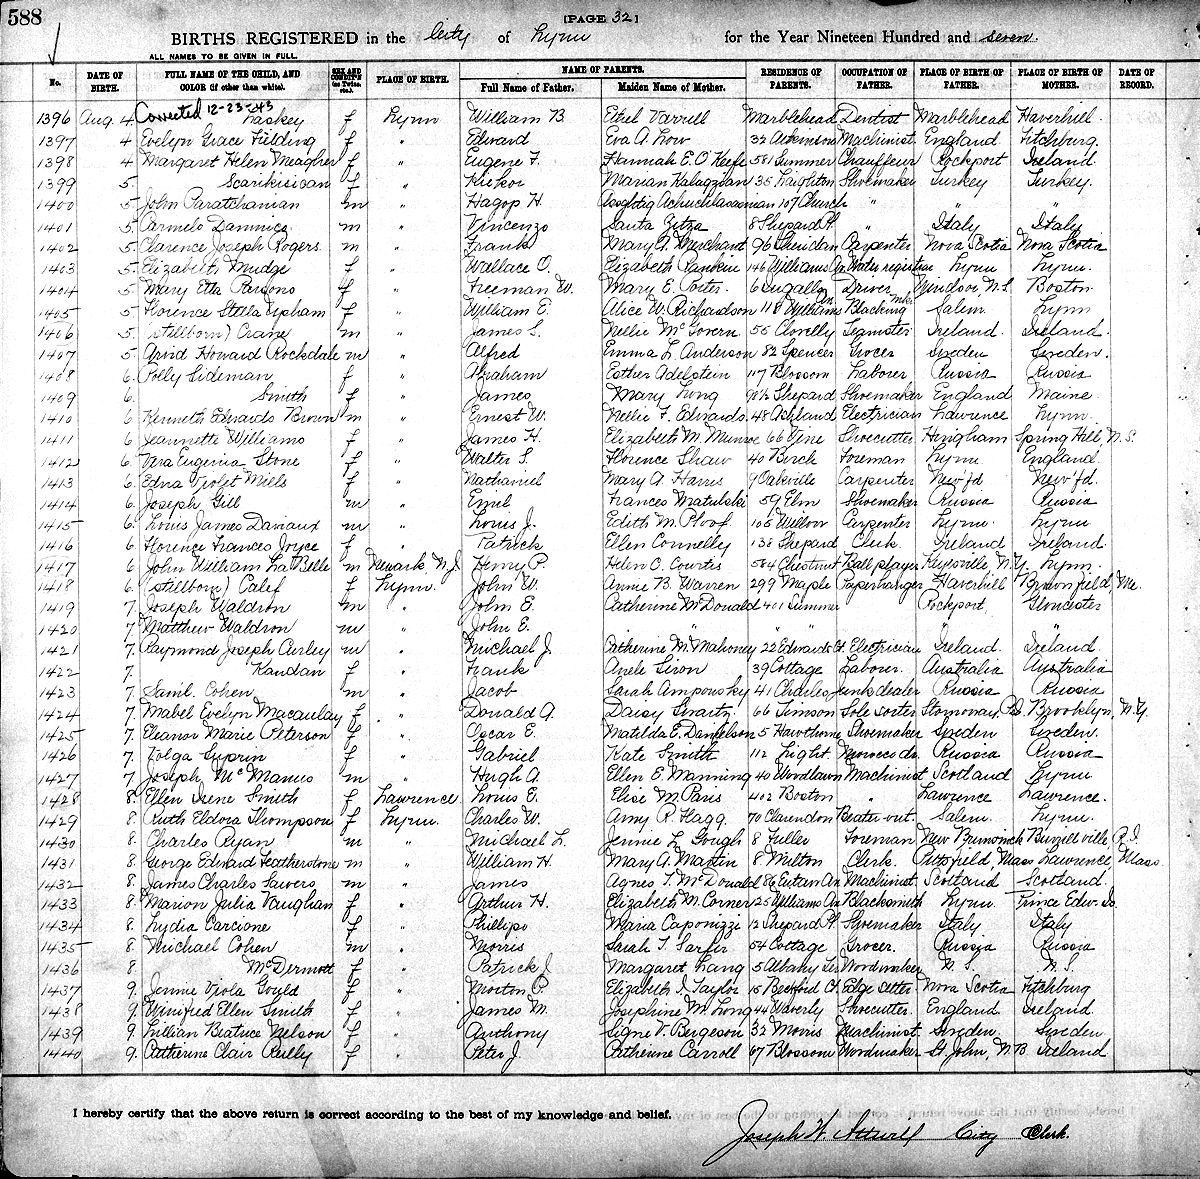 588
[PAGE 32]
BIRTHS REGISTERED in the City of Lynn for the Year Nineteen Hundred and seven.
ALL NAMES TO BE GIVEN IN FULL.
No. DATE OF BIRTH. FULL NAME OF THE CHILD, AND COLOR (if other than white). SEX AND CONDIT'N (as Twins, etc.) PLACE OF BIRTH. NAME OF PARENTS. Full Name of Father. Maiden Name of Mother. RESIDENCE OF PARENTS. OCCUPATION OF FATHER. PLACE OF BIRTH OF FATHER. PLACE OF BIRTH OF MOTHER. DATE OF RECORD.
Corrected 12-23-43
1396 Aug. 4 Laskey f Lynn William B Ethel Varrell Marblehead Dentist Marblehead Haverhill
1397 4 Evelyn Grace Fielding f " Edward Eva A. Low 32 Atkinson Machinist England Fitchburg.
1398 4 Margaret Helen Meagher f " Eugene F. Hannah E. O'Keefe 581 Summer Chauffeur Rockport Ireland
1399 5. f " Marian 35 Leighton Shoemaker Turkey Turkey.
1400 5. John m " Hagop H. 107 Church " " "
1401 5. Carmelo m " Vincenzo Santa 8 Shepard Pl. " Italy Italy
1402 5. Clarence Joseph Rogers m " Frank Mary A. Merchant 96 Sheridan Carpenter Nova Scotia Nova Scotia
1403 5. Elizabeth Mudge f " Wallace O. Elizabeth Rankin 146 Williams Av. Water Lynn Lynn.
1404 5. Mary Etta Parsons f " Freeman W. Mary E. Porter 6 Driver Windsor N.S. Boston
1405 5. Florence Stella Upham f " William E. Alice W. Richardson 118 Williams Av. Blacking mkr Salem Lynn
1406 5. (stillborn) Crane m " James S. Nellie McGovern 55 Clovelly Teamster Ireland. Ireland.
1407 5. Arvid Howard Rockdale m " Alfred Emma L. Anderson 82 Spencer Grocer Sweden Sweden.
1408 6. Polly Sideman f " Abraham Esther Adelstein 117 Blossom Laborer Russia Russia
1409 6. Smith f " James Mary Long 91½ Shepard Shoemaker England Maine
1410 6 Kenneth Edwards Brown m " Ernest W. Nellie F. Edwards 48 Ashland Electrician Lawrence Lynn.
1411 6 Jeannette Williams f " James H. Elizabeth M. Munroe 66 Vine Shoecutter Hingham Spring Hill, N.S.
1412 6. Vera Eugenia Stone f " Walter S. Florence Shaw 40 Birch Foreman Lynn England
1413 6. Edna Violet Mills f " Nathaniel Mary A. Harris 9 Oakville Carpenter Newf'd Newf'd.
1414 6. Joseph Gill m " Emil Frances Matulski 59 Elm Shoemaker Russia Russia
1415 6. Louis James Daviaux m " Louis J. Edith M. Ploof 105 Willow Carpenter Lynn Lynn
1416 6 Florence Frances Joyce f " Patrick Ellen Connelly 138 Shepard Clerk Ireland Ireland.
1417 6 John William La Belle m Newark N.J Henry P. Helen C. Courtis 584 Chestnut Ball player N.Y. Lynn.
1418 6 (stillborn) Calef f Lynn. John W. Annie B. Warren 299 Maple Paperhanger Haverhill Brownfield, Me.
1419 7. Joseph Waldron m " John E. Catherine McDonald 401 Summer Rockport, Gloucester
1420 7. Matthew Waldron m " John E. " " " "
1421 7. Raymond Joseph Curley m " Michael J. Catherine M. Mahoney 22 Edwards Ct Electrician Ireland. Ireland.
1422 7. Kandan f " Frank 39 Cottage Laborer. Australia Australia
1423 7 Saml. Cohen m " Jacob Sarah Amponsky 41 Charles Junk dealer Russia Russia
1424 7. Mabel Evelyn Macaulay f " Donald A. Daisy Swartz 66 Timson Sole sorter Brooklyn, N.Y.
1425 7. Eleanor Marie Peterson f " Oscar E. Matilda E. Danielson 5 Hawthorne Shoemaker Sweden Sweden.
1426 7 Volga f " Gabriel Kate Smith 112 Light Morocco dr. Russia Russia
1427 7. Joseph McManus m " Hugh A. Ellen E. Manning 40 Woodlawn Machinist Scotland Lynn
1428 8. Ellen Irene Smith f Lawrence Louis E. Elise M. Paris 402 Boston " Lawrence Lawrence.
1429 8. Ruth Eldora Thompson f Lynn. Charles W. Amy R. Flagg. 70 Clarendon Beater-out. Salem Lynn.
1430 8. Charles Ryan m " Michael L. Jennie L. Gough 8 Fuller Foreman New Brunswick Burrillville, R.I.
1431 8. George Edward Featherstone m " William H. Mary A. Martin 8 Milton Clerk. Pittsfield, Mass Lawrence, Mass.
1432 8. James Charles Sawers m " James Agnes T. McDonald 86 Eutaw Av. Machinist. Scotland, Scotland.
1433 8. Marion Julia Vaughan f " Arthur H. Elizabeth M. Corner 25 Williams Av Blacksmith Lynn. Prince Edw. Is.
1434 8. Lydia Carcione f " Phillipo Maria Caponizzi 12 Shepard Pl. Shoemaker Italy Italy
1435 8. Michael Cohen m " Morris Sarah T. 54 Cottage Grocer. Russia Russia
1436 8. McDermott f " Patrick J. Margaret Lang 5 Albany Ter Woodmaker N.S. N.S.
1437 9. Jennie Viola Gould f " Morton P. Elizabeth J. Taylor 15 Bedford Ct. Edge setter. Nova Scotia Fitchburg
1438 9. Winifred Ellen Smith f " James M. Josephine M. Long 44 Waverly Shoecutter. England Ireland
1439 9. Lillian Beatrice Nelson f " Anthony Signe V. Bergeson 32 Morris Machinist. Sweden. Sweden
1440 9. Catherine Clair Reilly f " Peter J. Catherine Carroll 67 Blossom Woodmaker St. John, N.B Ireland
I hereby certify that the above return is correct according to the best of my knowledge and belief.
Joseph W. Attwill City Clerk.